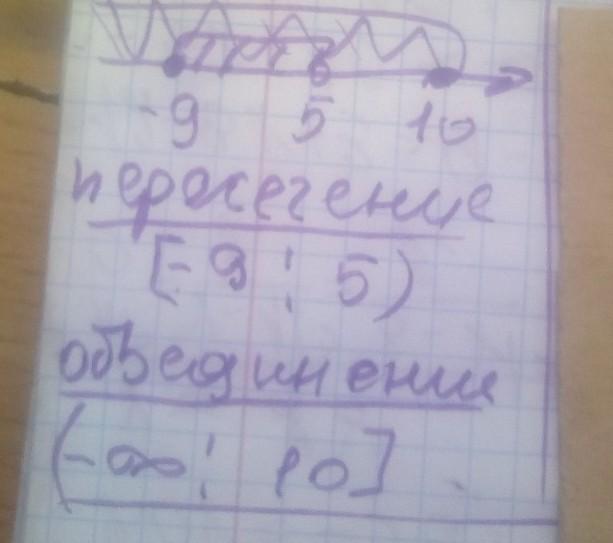 -9 5 10
пересечение
[-9; 5)
объединение
(-∞; 10]